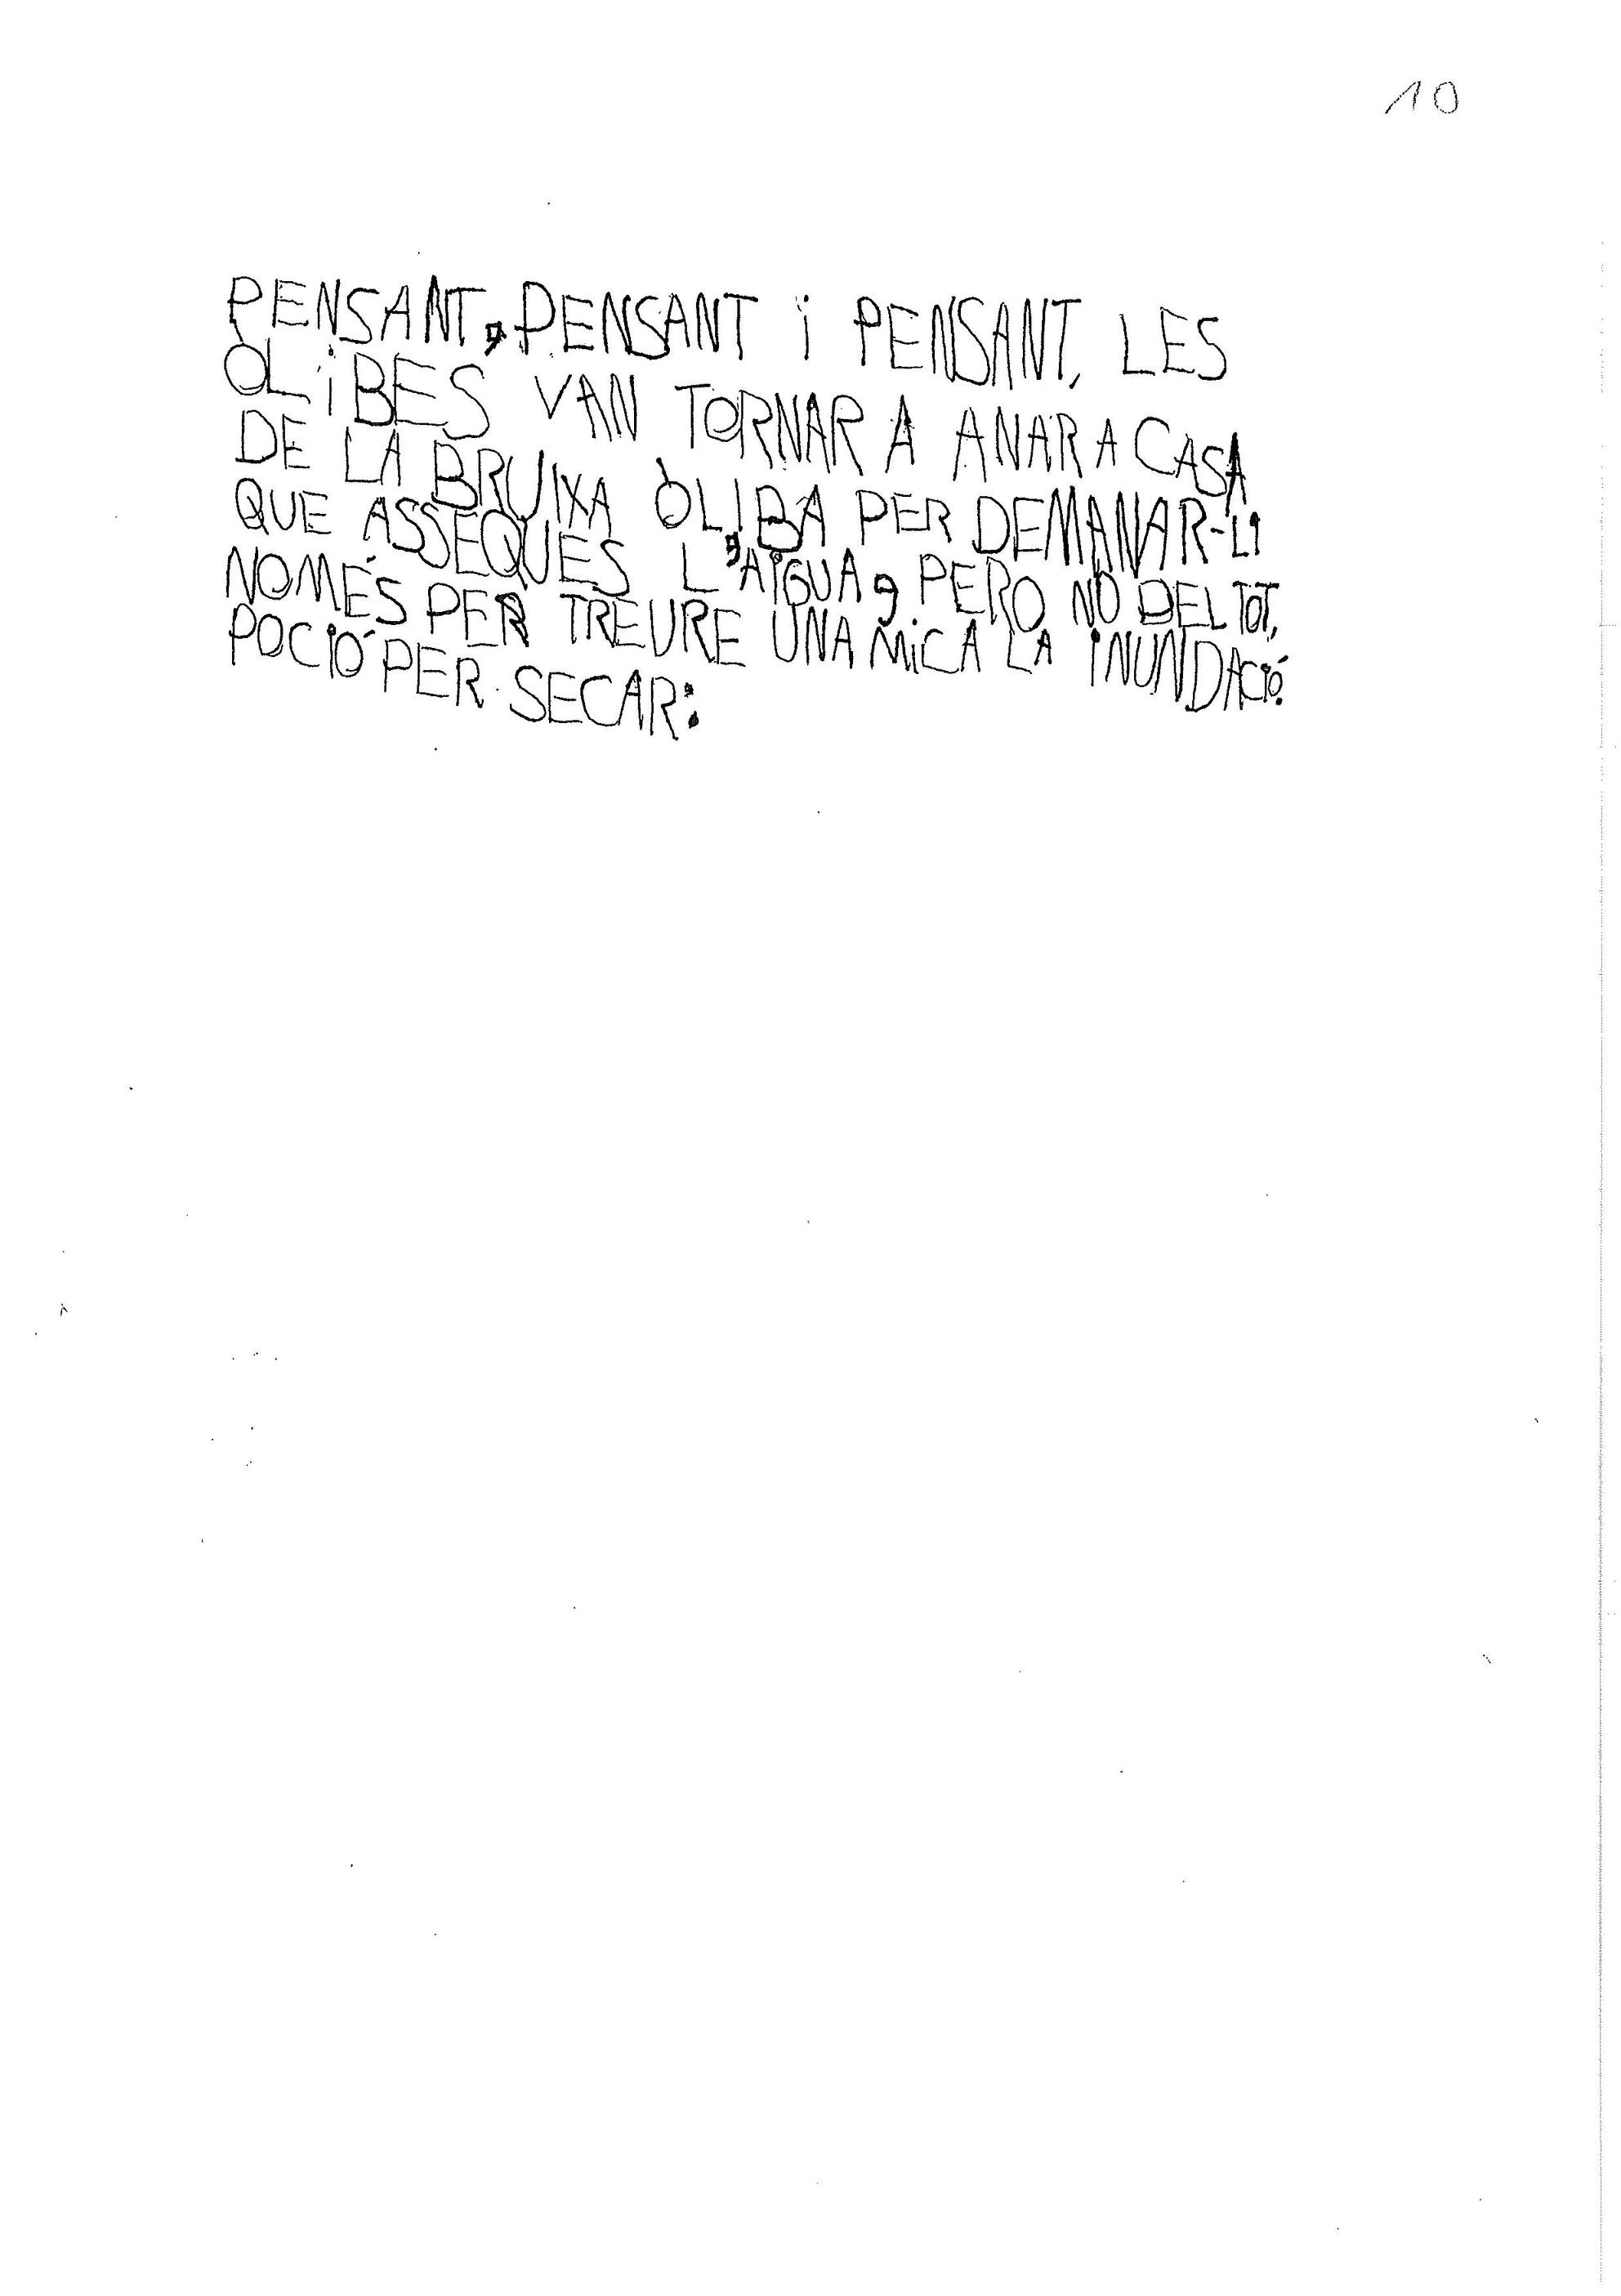 10
PENSANT, PENSANT i PENSANT, LES
ÒLiBES VAN TORNAR A ANAR A CASA
DE LA BRUIXA ÒLIBA PER DEMANAR-LI
QUE ASSEQUES L'AIGUA, PERO NO DEL TOT,
NOMÉS PER TREURE UNA MiCA LA iNUNDACIÓ.
POCIÓ PER SECAR: